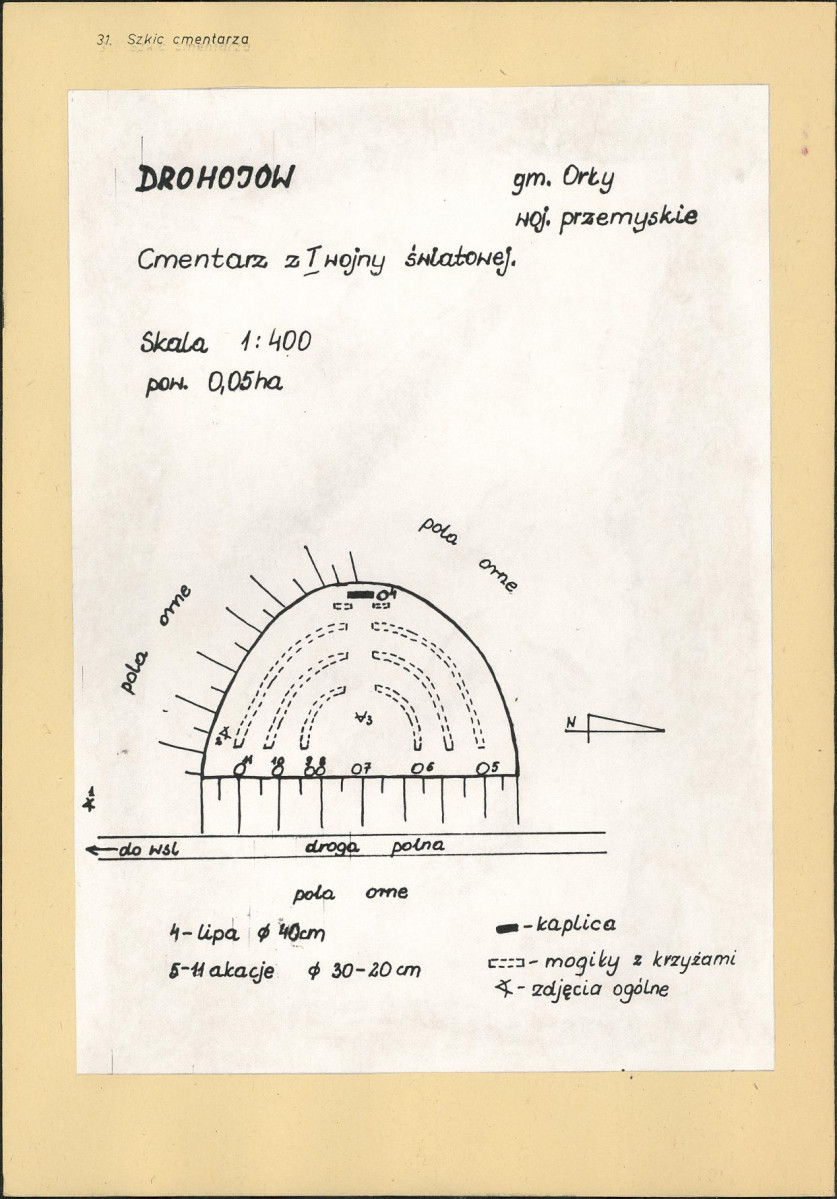 31. Szkic cmentarza
DROHOJÓW
gm. Orły
woj. przemyskie
Cmentarz z I wojny światowej.
Skala 1:400
pow. 0,05ha
pola orne
pola orne
4
3
2
N
11 10 9 8 7 6 5
1
do wsi droga polna
pola orne
4-lipa ϕ 40cm
5-11 akacje ϕ 30-20cm
-kaplica
- mogiły z krzyżami
- zdjęcia ogólne